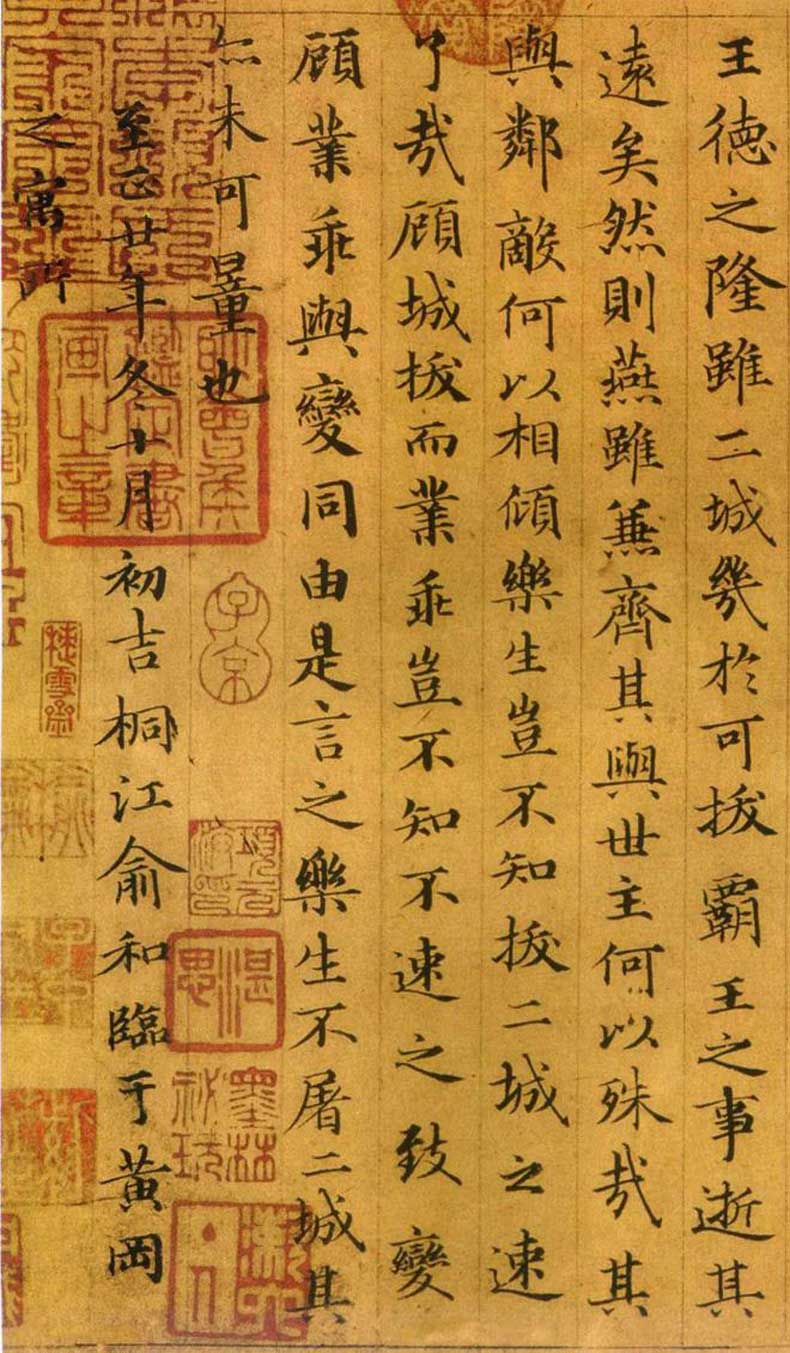 王德之隆雖二城幾於可拔霸王之事逝其
遠矣然則燕雖兼齊其與世主何以殊哉其
與鄰敵何以相傾樂生豈不知拔二城之速
了哉顧城拔而業乖豈不知不速之致變
顧業乖與變同由是言之樂生不屠二城其
亦未可量也
至正廿年冬十月初吉桐江俞和臨于黃岡
之寓所
子京
項元汴印
湛思
墨林祕玩